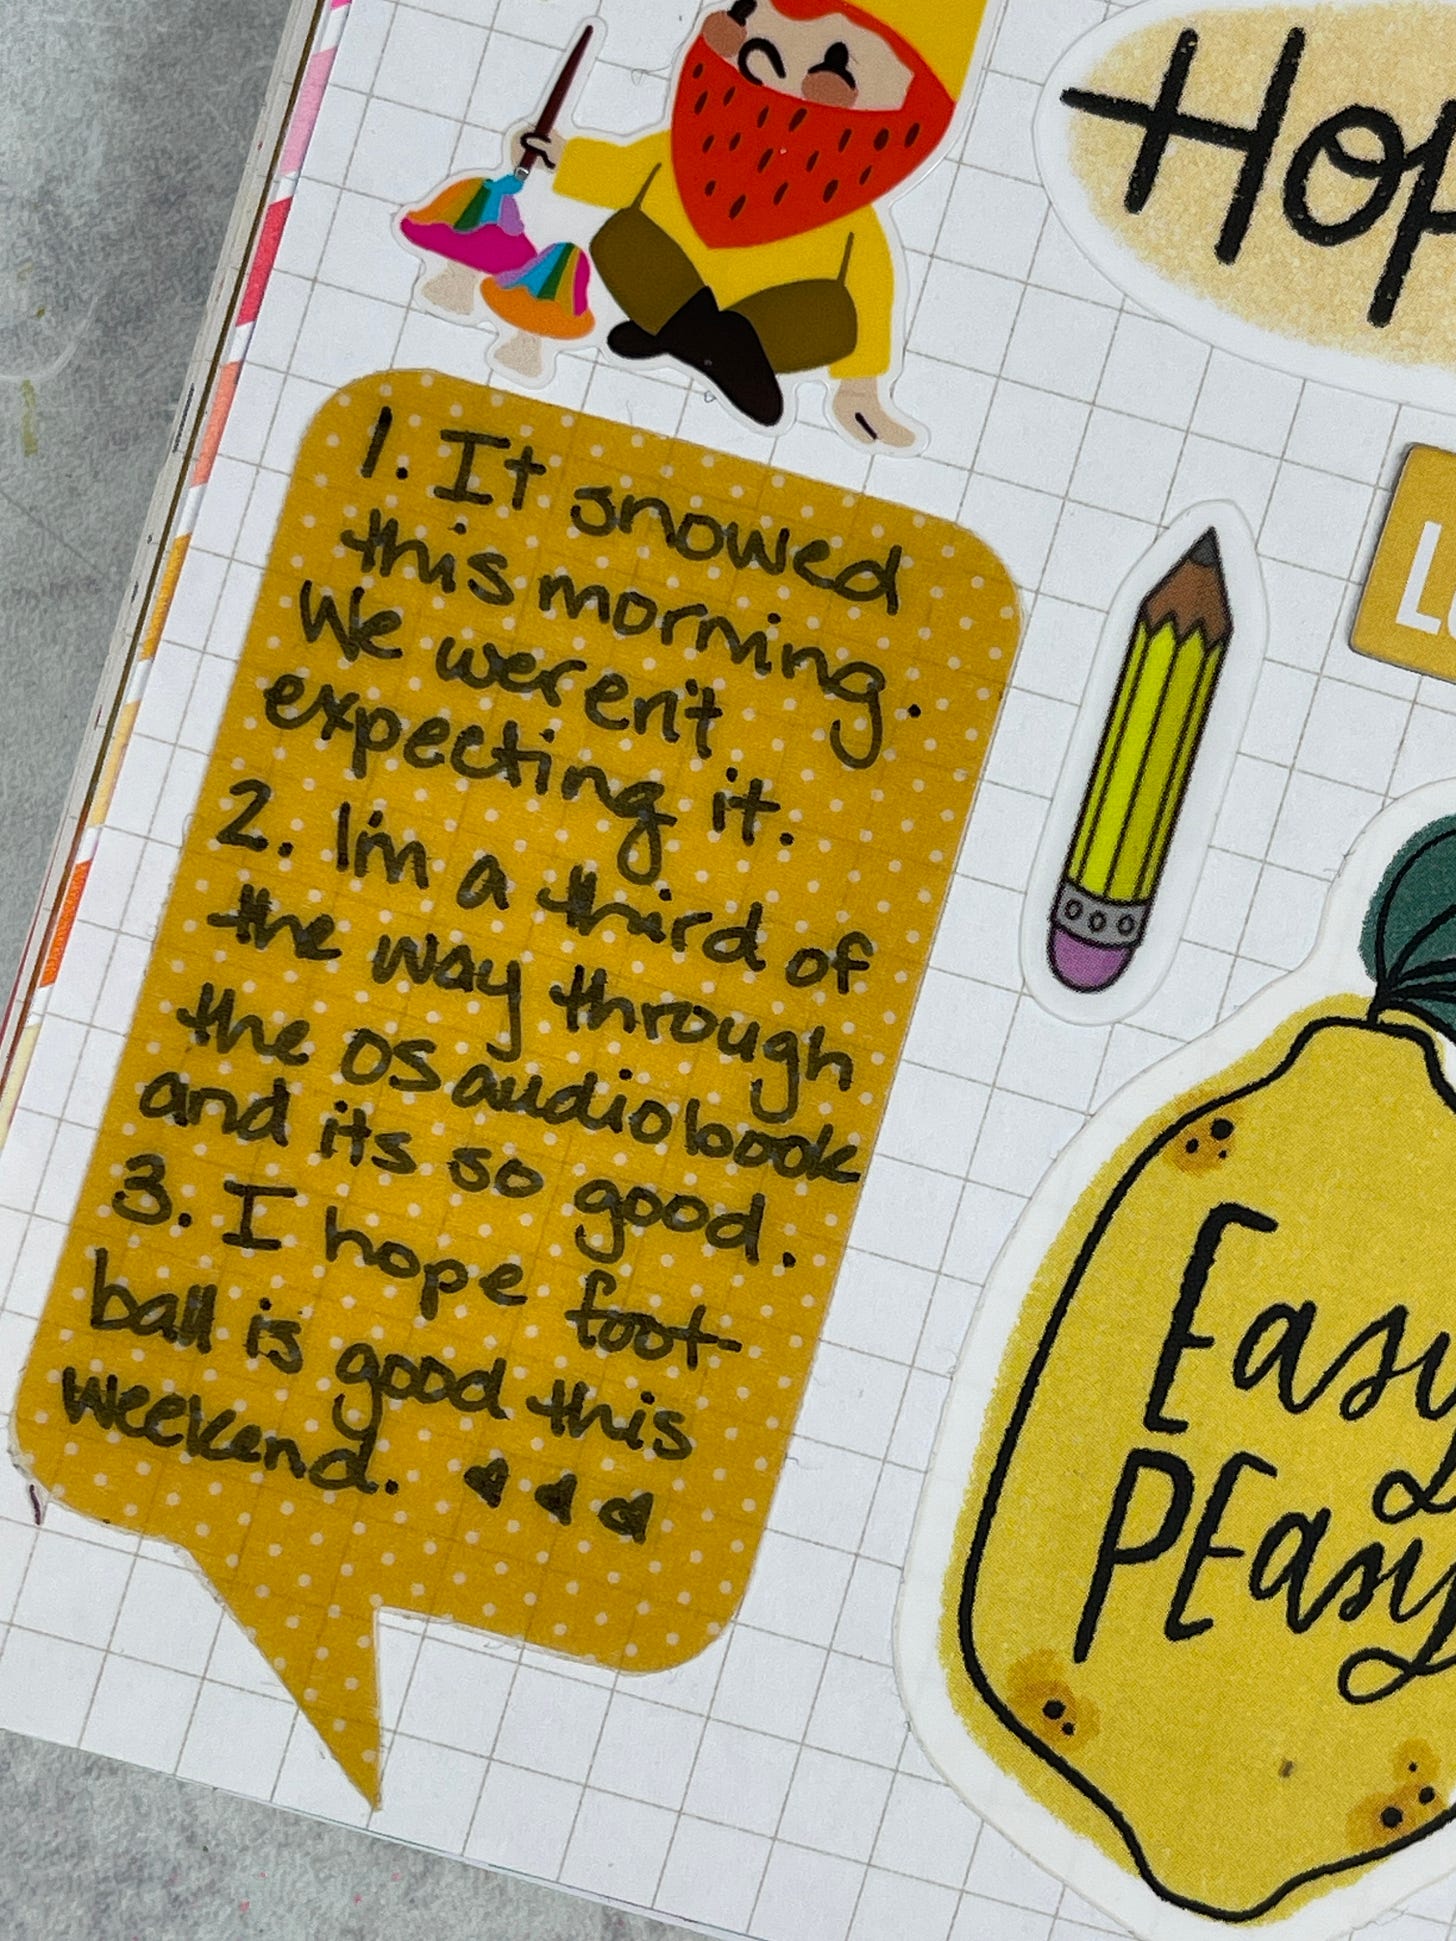 Hop
1. It snowed
this morning.
We weren't
expecting it.
2. I'm a third of
the way through
the OS audiobook
and its so good.
3. I hope foot-
ball is good this
weekend.
L
Easy
PEasy